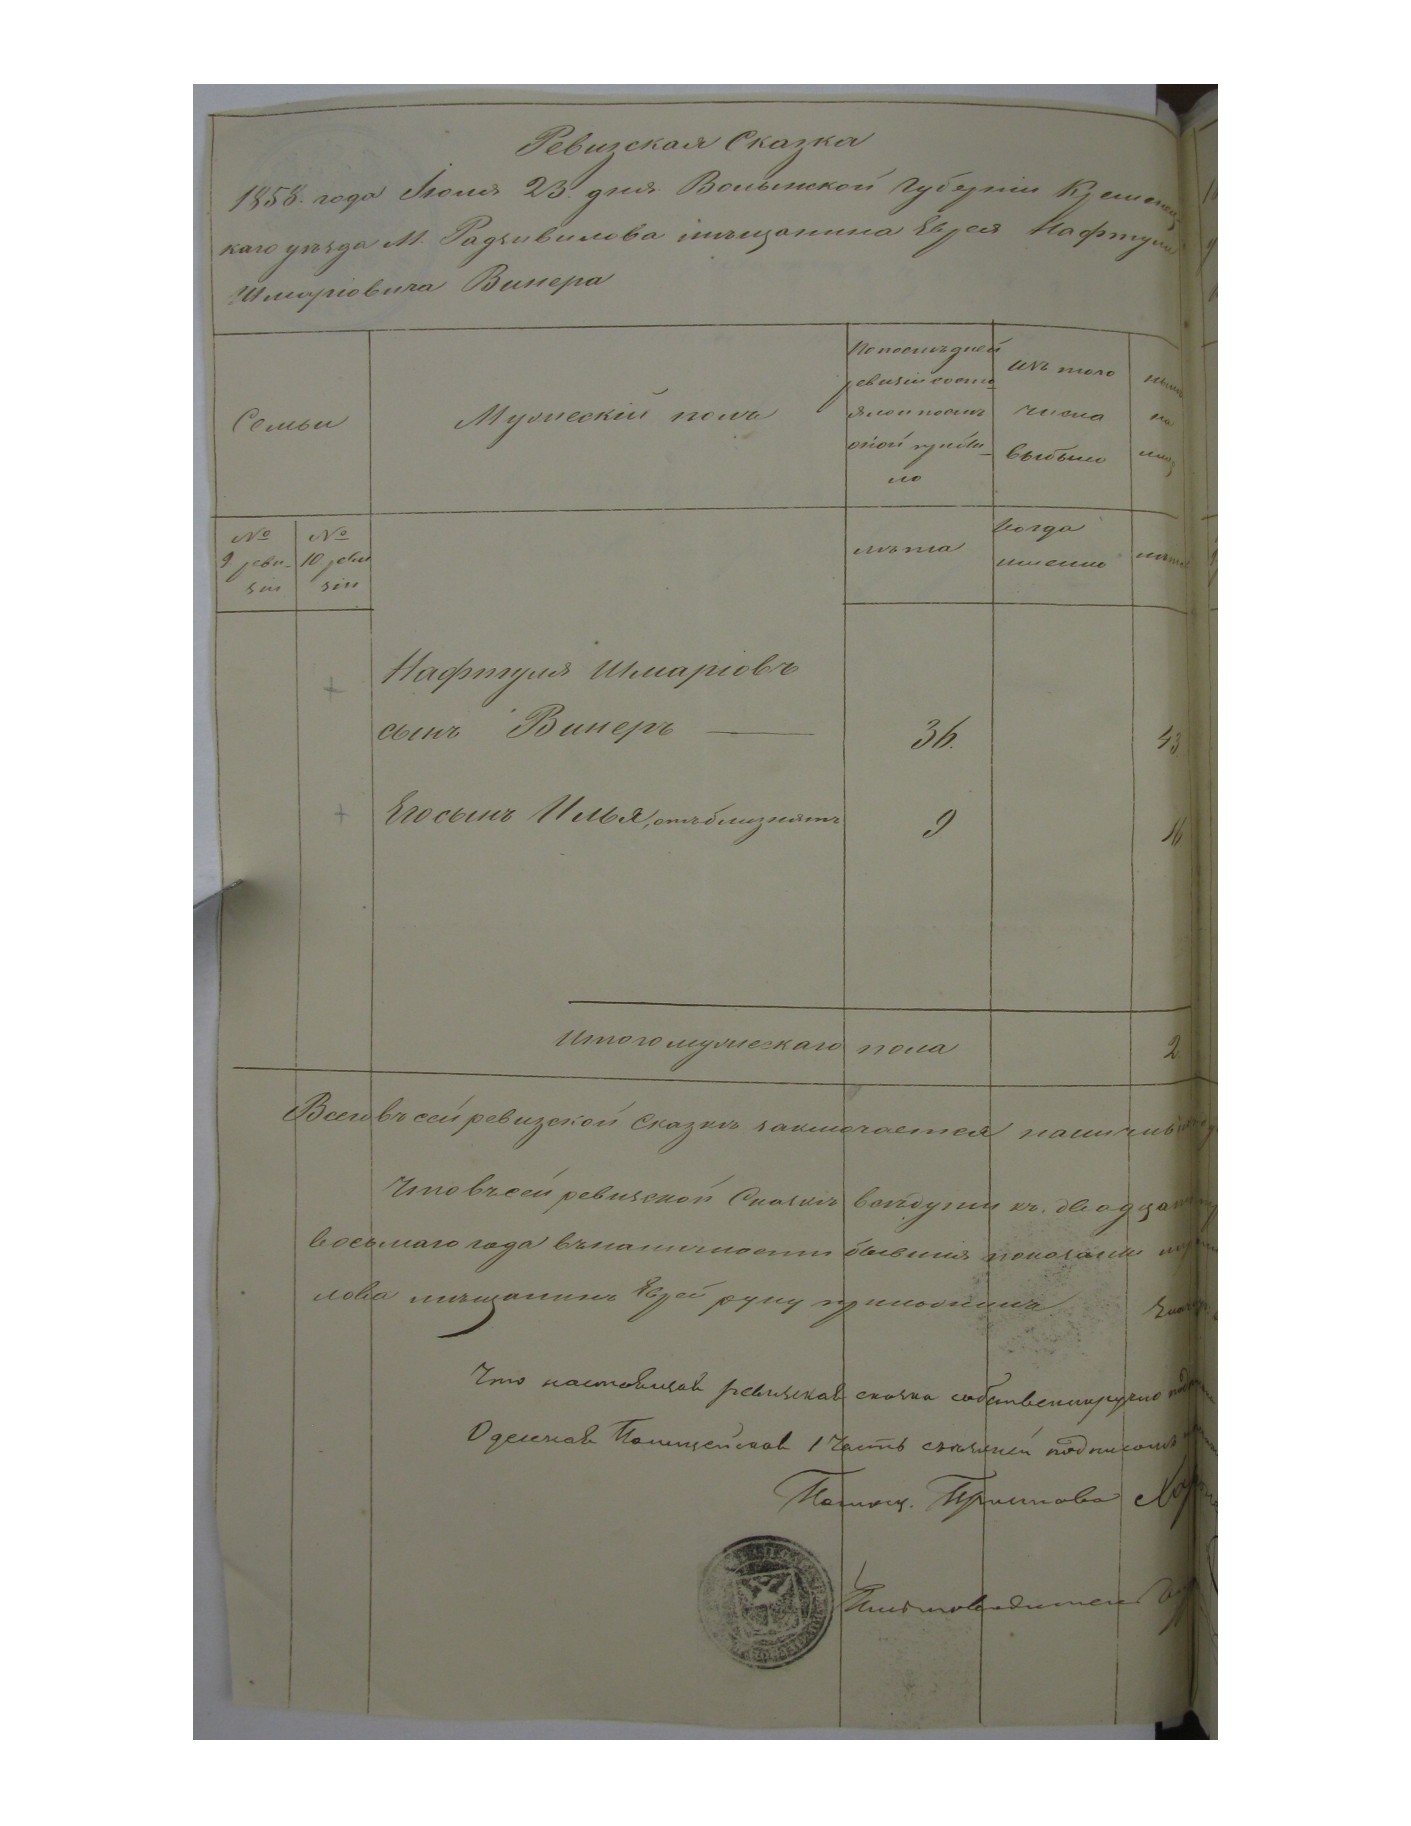 Ревизская Сказка
1858. года Июля 23. дня Волынской Губернии Кременец-
каго уезда М. Радзивилова мѣщанина Еврея Нафтули
Шмаріовича Винера
Семьи
Мужескій полъ
По послѣдней
ревизіи состо
яло и послѣ
оной прибы-
ло
Изъ того
числа
выбыло
ныне
на
лицо
№
9 реви-
зіи
№
10 реви
зіи
лѣта
когда
именно
лѣта
Нафтуля Шмаріовъ
сынъ Винеръ
36.
43.
Его сынъ Илья, отъ близнятъ
9
16
Итого мужескаго пола
2
Всего въ сей ревизской Сказкѣ заключается наличныхъ
Что въ сей ревизской Сказкѣ
восьмаго года въ наличности бывшія показаны
лова мѣщанинъ Еврей руку приложилъ
Что настоящая ревизская сказка собственноручно
Одесская Полицейская 1 Часть
Полиц. Пристава
Письмоводитель